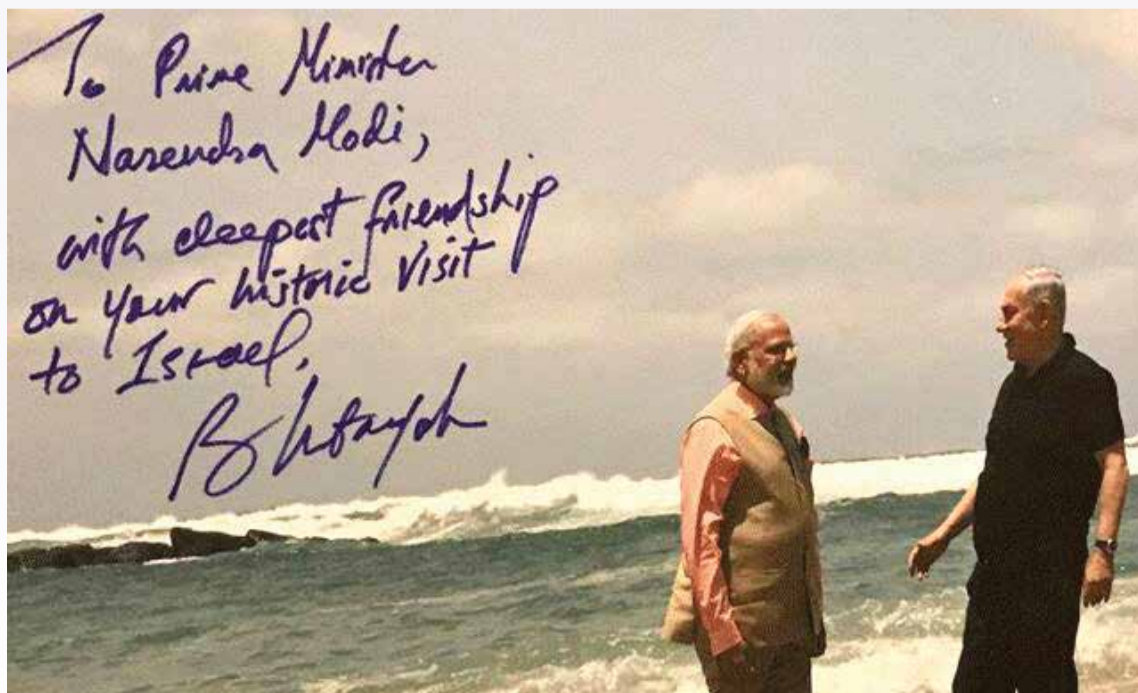 To Prime Minister
Narendra Modi,
with deepest friendship
on your historic visit
to Israel.